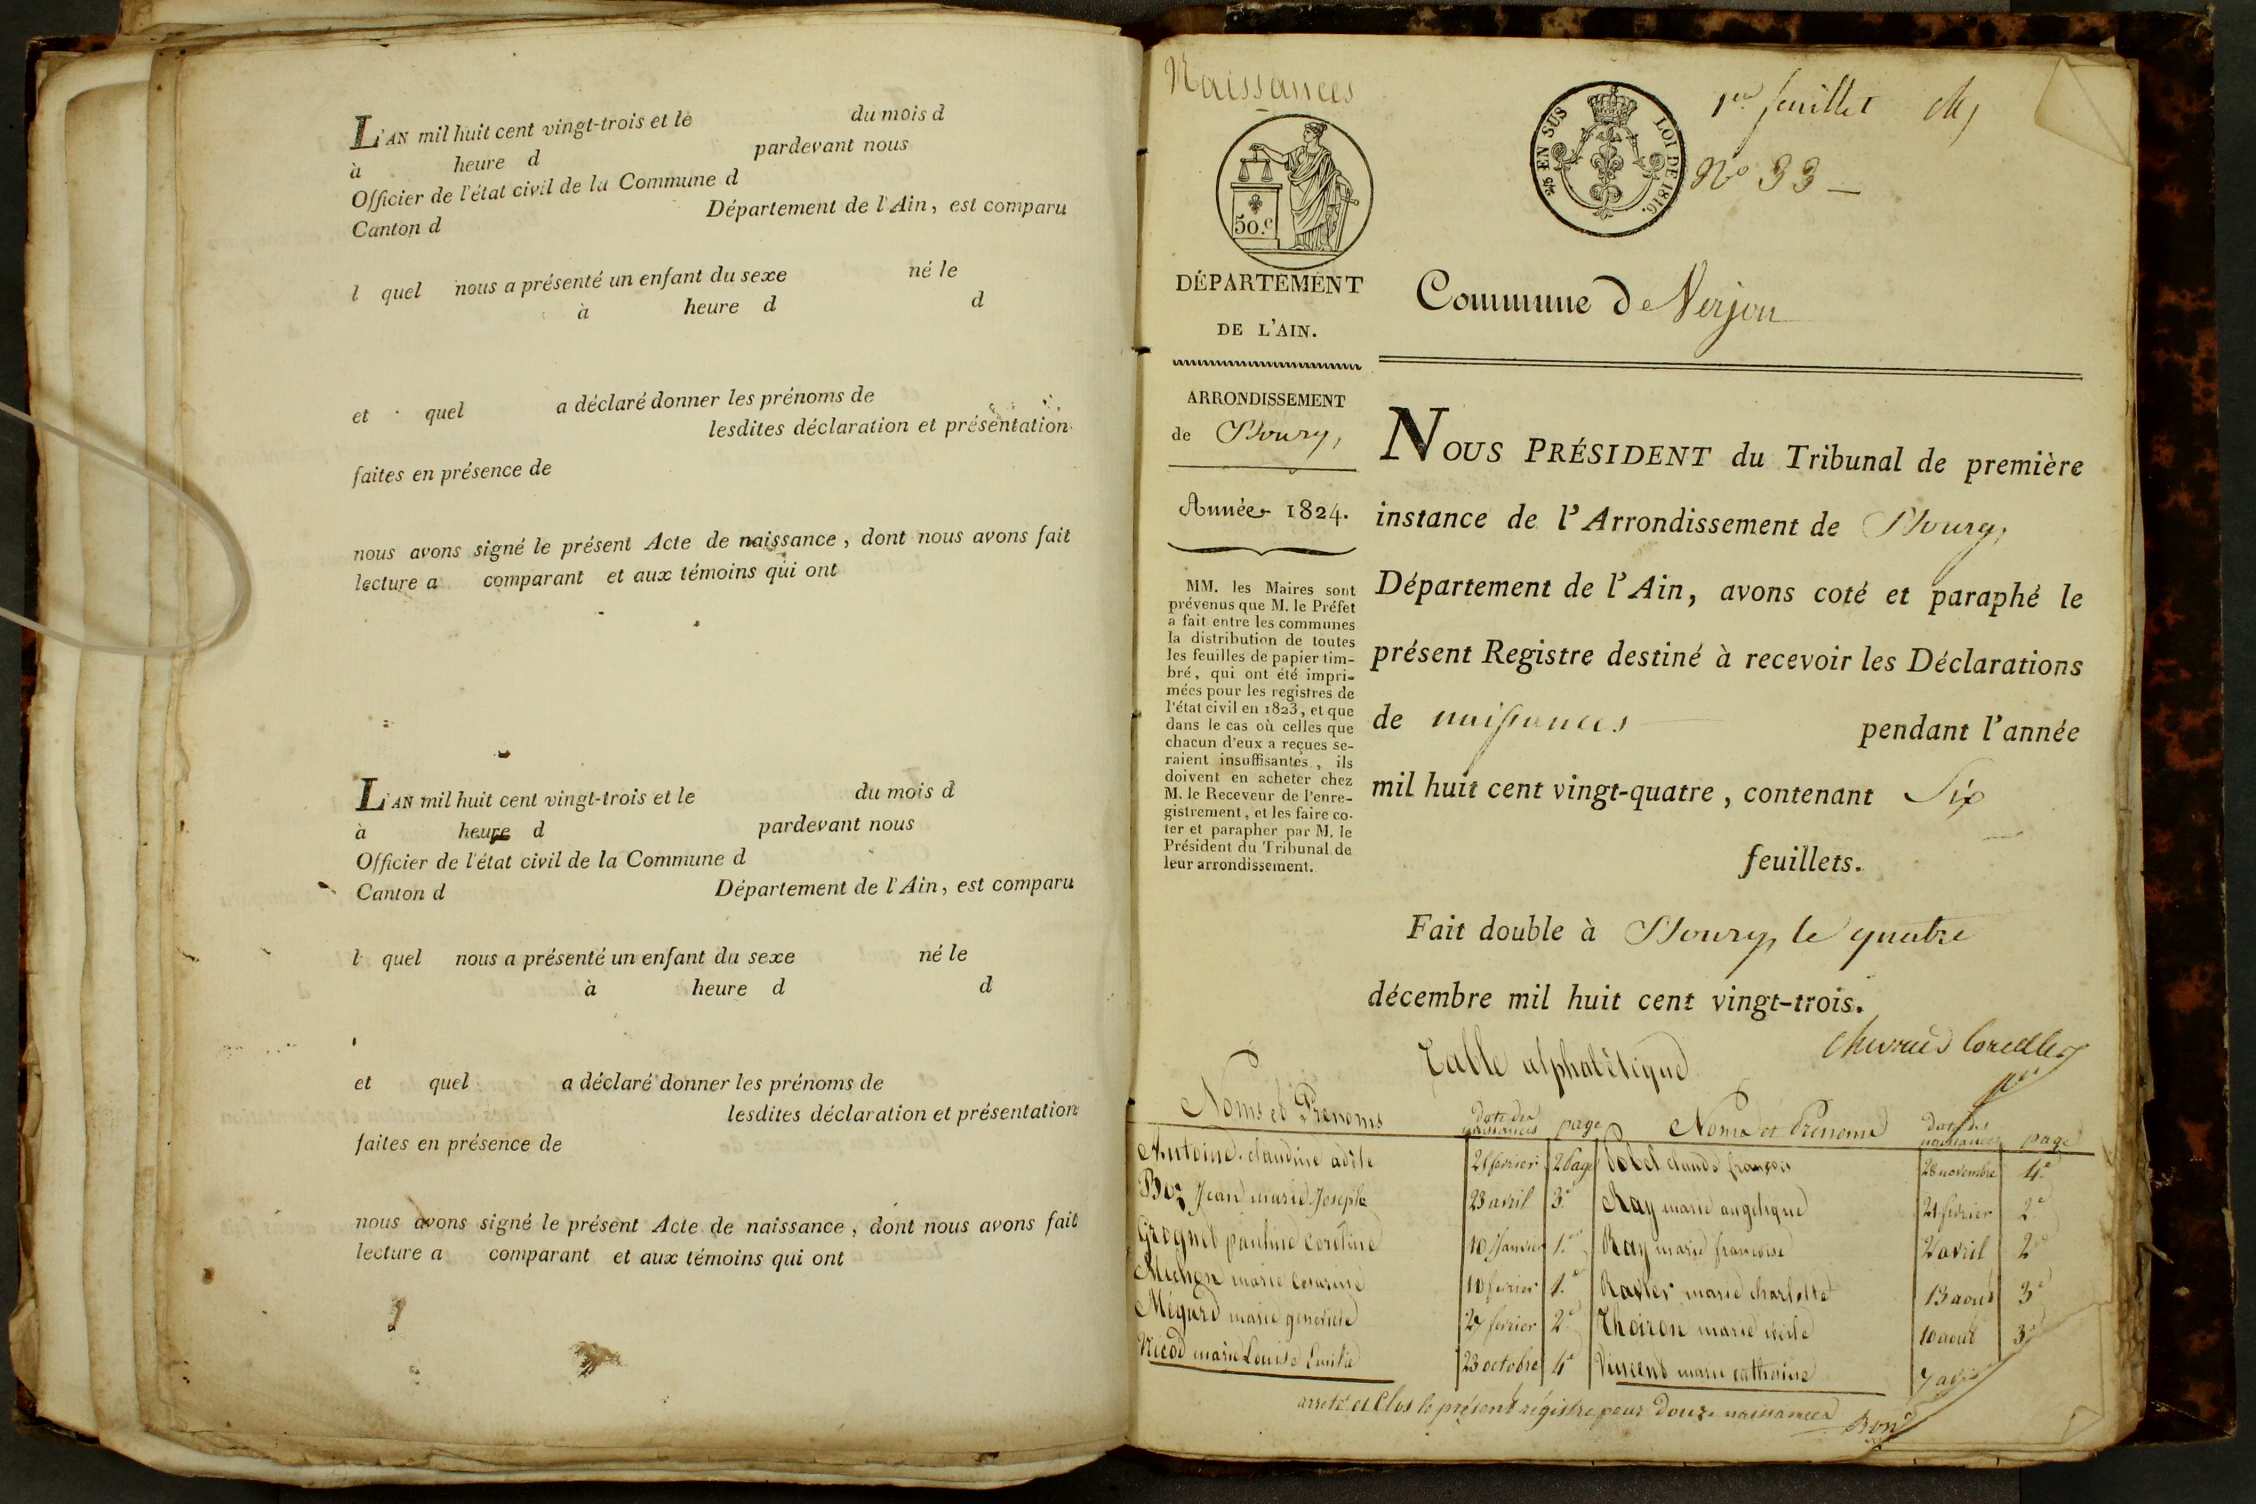 L'AN mil huit cent vingt-trois et le du mois d
à heure d pardevant nous
Officier de l'état civil de la Commune d
Canton d Département de l'Ain, est comparu
l quel nous a présenté un enfant du sexe né le
à heure d d
et quel a déclaré donner les prénoms de
lesdites déclaration et présentation
faites en présence de
nous avons signé le présent Acte de naissance, dont nous avons fait
lecture a comparant et aux témoins qui ont
L'AN mil huit cent vingt-trois et le du mois d
à heure d pardevant nous
Officier de l'état civil de la Commune d
Canton d Département de l'Ain, est comparu
l quel nous a présenté un enfant du sexe né le
à heure d d
et quel a déclaré donner les prénoms de
lesdites déclaration et présentation
faites en présence de
nous avons signé le présent Acte de naissance, dont nous avons fait
lecture a comparant et aux témoins qui ont
Naissances
50.c
EN SUS LOI DE 1816.
1er feuillet
No 33
DÉPARTEMENT
DE L'AIN.
Commune de Verjon
ARRONDISSEMENT
de Bourg,
Année 1824.
MM. les Maires sont
prévenus que M. le Préfet
a fait entre les communes
la distribution de toutes
les feuilles de papier tim-
bré, qui ont été impri-
mées pour les registres de
l'état civil en 1823, et que
dans le cas où celles que
chacun d'eux a reçues se-
raient insuffisantes, ils
doivent en acheter chez
M. le Receveur de l'enre-
gistrement, et les faire co-
ter et parapher par M. le
Président du Tribunal de
leur arrondissement.
NOUS PRÉSIDENT du Tribunal de première
instance de l'Arrondissement de Bourg,
Département de l'Ain, avons coté et paraphé le
présent Registre destiné à recevoir les Déclarations
de naissances pendant l'année
mil huit cent vingt-quatre, contenant Six
feuillets.
Fait double à Bourg, le quatre
décembre mil huit cent vingt-trois.
Table alphabétique
Noms et Prenoms date des naissances page Noms et Prenoms date des naissances page
Antoine claudine adèle 21 fevrier 2 page claude françois 28 novembre 4e
Jean marie Joseph 23 avril 3e Ray marie angelique 21 fevrier 2e
pauline 10 Janvier 1er Ray marie francoise 2 avril 2e
Michon marie 10 fevrier 1er Ravier marie charlotte 13 aout 3e
Mégard marie genevieve 27 fevrier 2e Thoiron marie cécile 10 aout 3e
Nicod marie Louise Emilie 23 octobre 4e Vincent marie catherine 7
arreté et Clos le présent régistre pour douze naissances